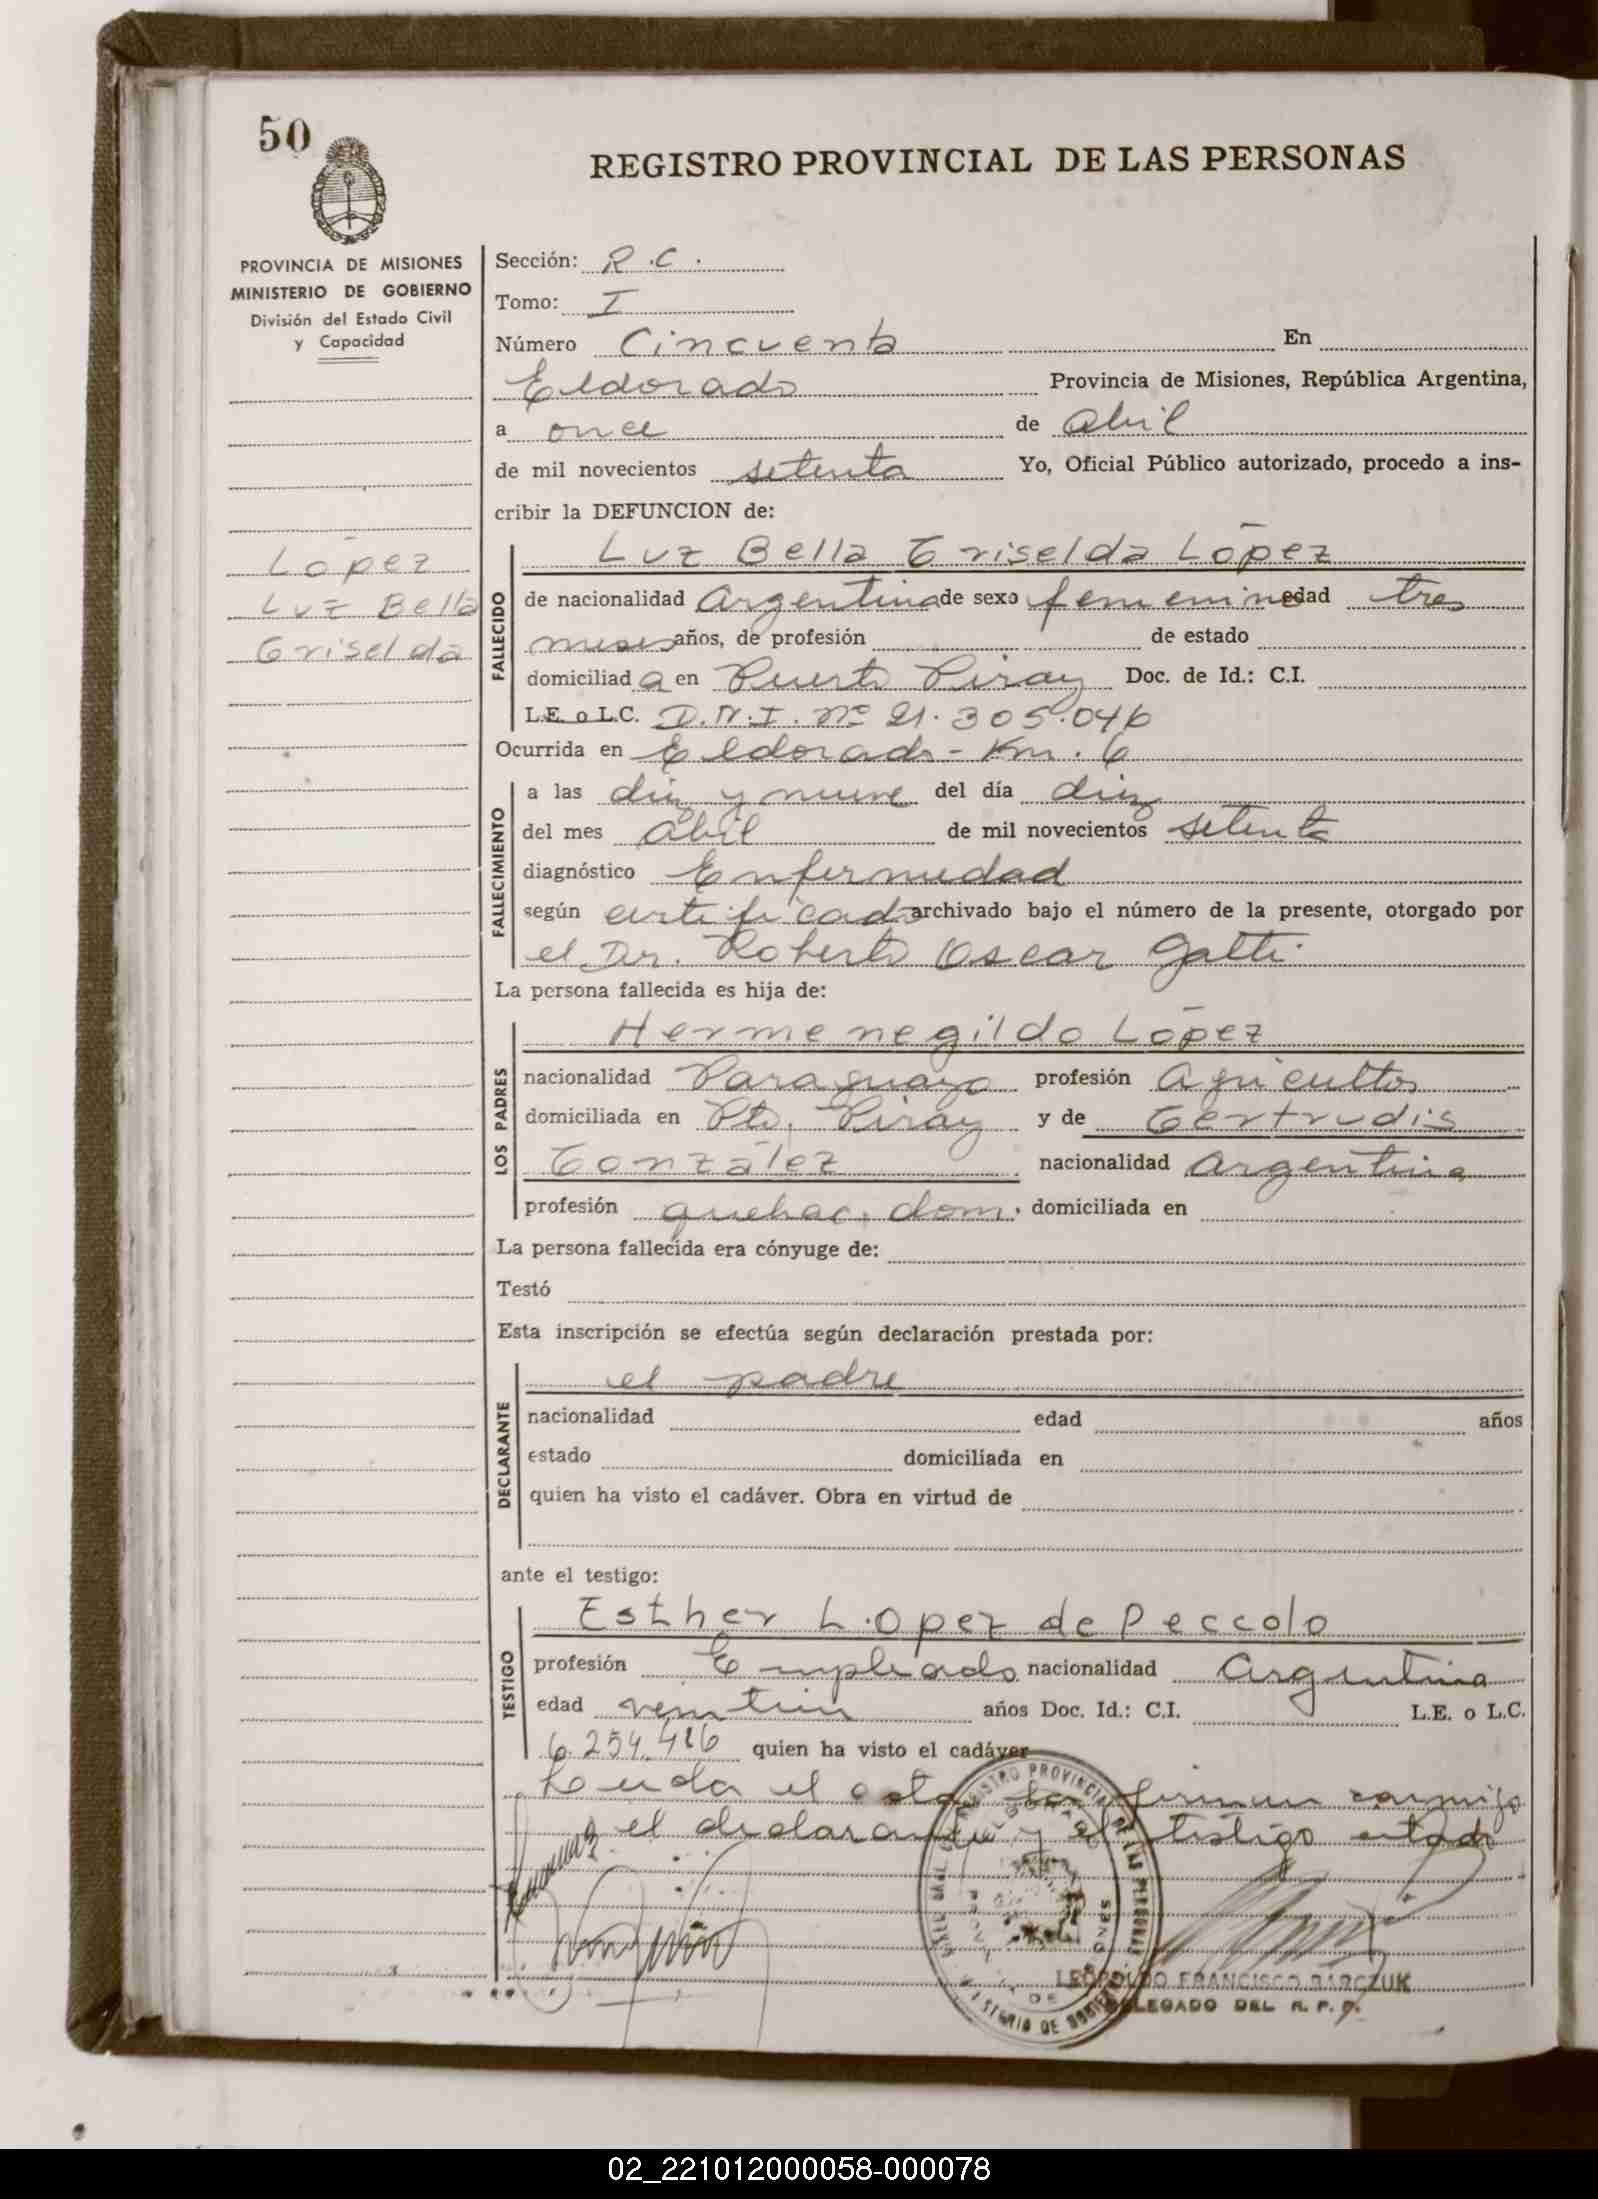 50
REGISTRO PROVINCIAL DE LAS PERSONAS
PROVINCIA DE MISIONES
MINISTERIO DE GOBIERNO
División del Estado Civil
y Capacidad
López
Luz Bella
Griselda
Sección: R.C.
Tomo: I
Número Cincuenta En
Eldorado Provincia de Misiones, República Argentina,
a once de abril
de mil novecientos setenta Yo, Oficial Público autorizado, procedo a ins-
cribir la DEFUNCION de:
FALLECIDO
Luz Bella Griselda López
de nacionalidad Argentina de sexo femenino edad tres
meses años, de profesión de estado
domiciliada en Puerto Piray Doc. de Id.: C.I.
L.E. o L.C. D.N.I. Nº 21.305.046
Ocurrida en Eldorado - Km. 6
FALLECIMIENTO
a las diez y nueve del día diez
del mes abril de mil novecientos setenta
diagnóstico Enfermedad
según certificado archivado bajo el número de la presente, otorgado por
el Dr. Roberto Oscar Gatti
La persona fallecida es hija de:
LOS PADRES
Hermenegildo López
nacionalidad Paraguayo profesión Agricultor
domiciliada en Pto. Piray y de Gertrudis
González nacionalidad argentina
profesión quehac. dom. domiciliada en
La persona fallecida era cónyuge de:
Testó
Esta inscripción se efectúa según declaración prestada por:
DECLARANTE
el padre
nacionalidad edad años
estado domiciliada en
quien ha visto el cadáver. Obra en virtud de
ante el testigo:
TESTIGO
Esther Lopez de Peccolo
profesión Empleado nacionalidad argentina
edad años Doc. Id.: C.I. L.E. o L.C.
6.254.486 quien ha visto el cadáver
Leída el acta la firman conmigo
el declarante y el testigo citado
REGISTRO PROVINCIAL DE LAS PERSONAS
MINISTERIO DE GOBIERNO
LEOPOLDO FRANCISCO BARCZUK
DELEGADO DEL R. P. P.
02_221012000058-000078